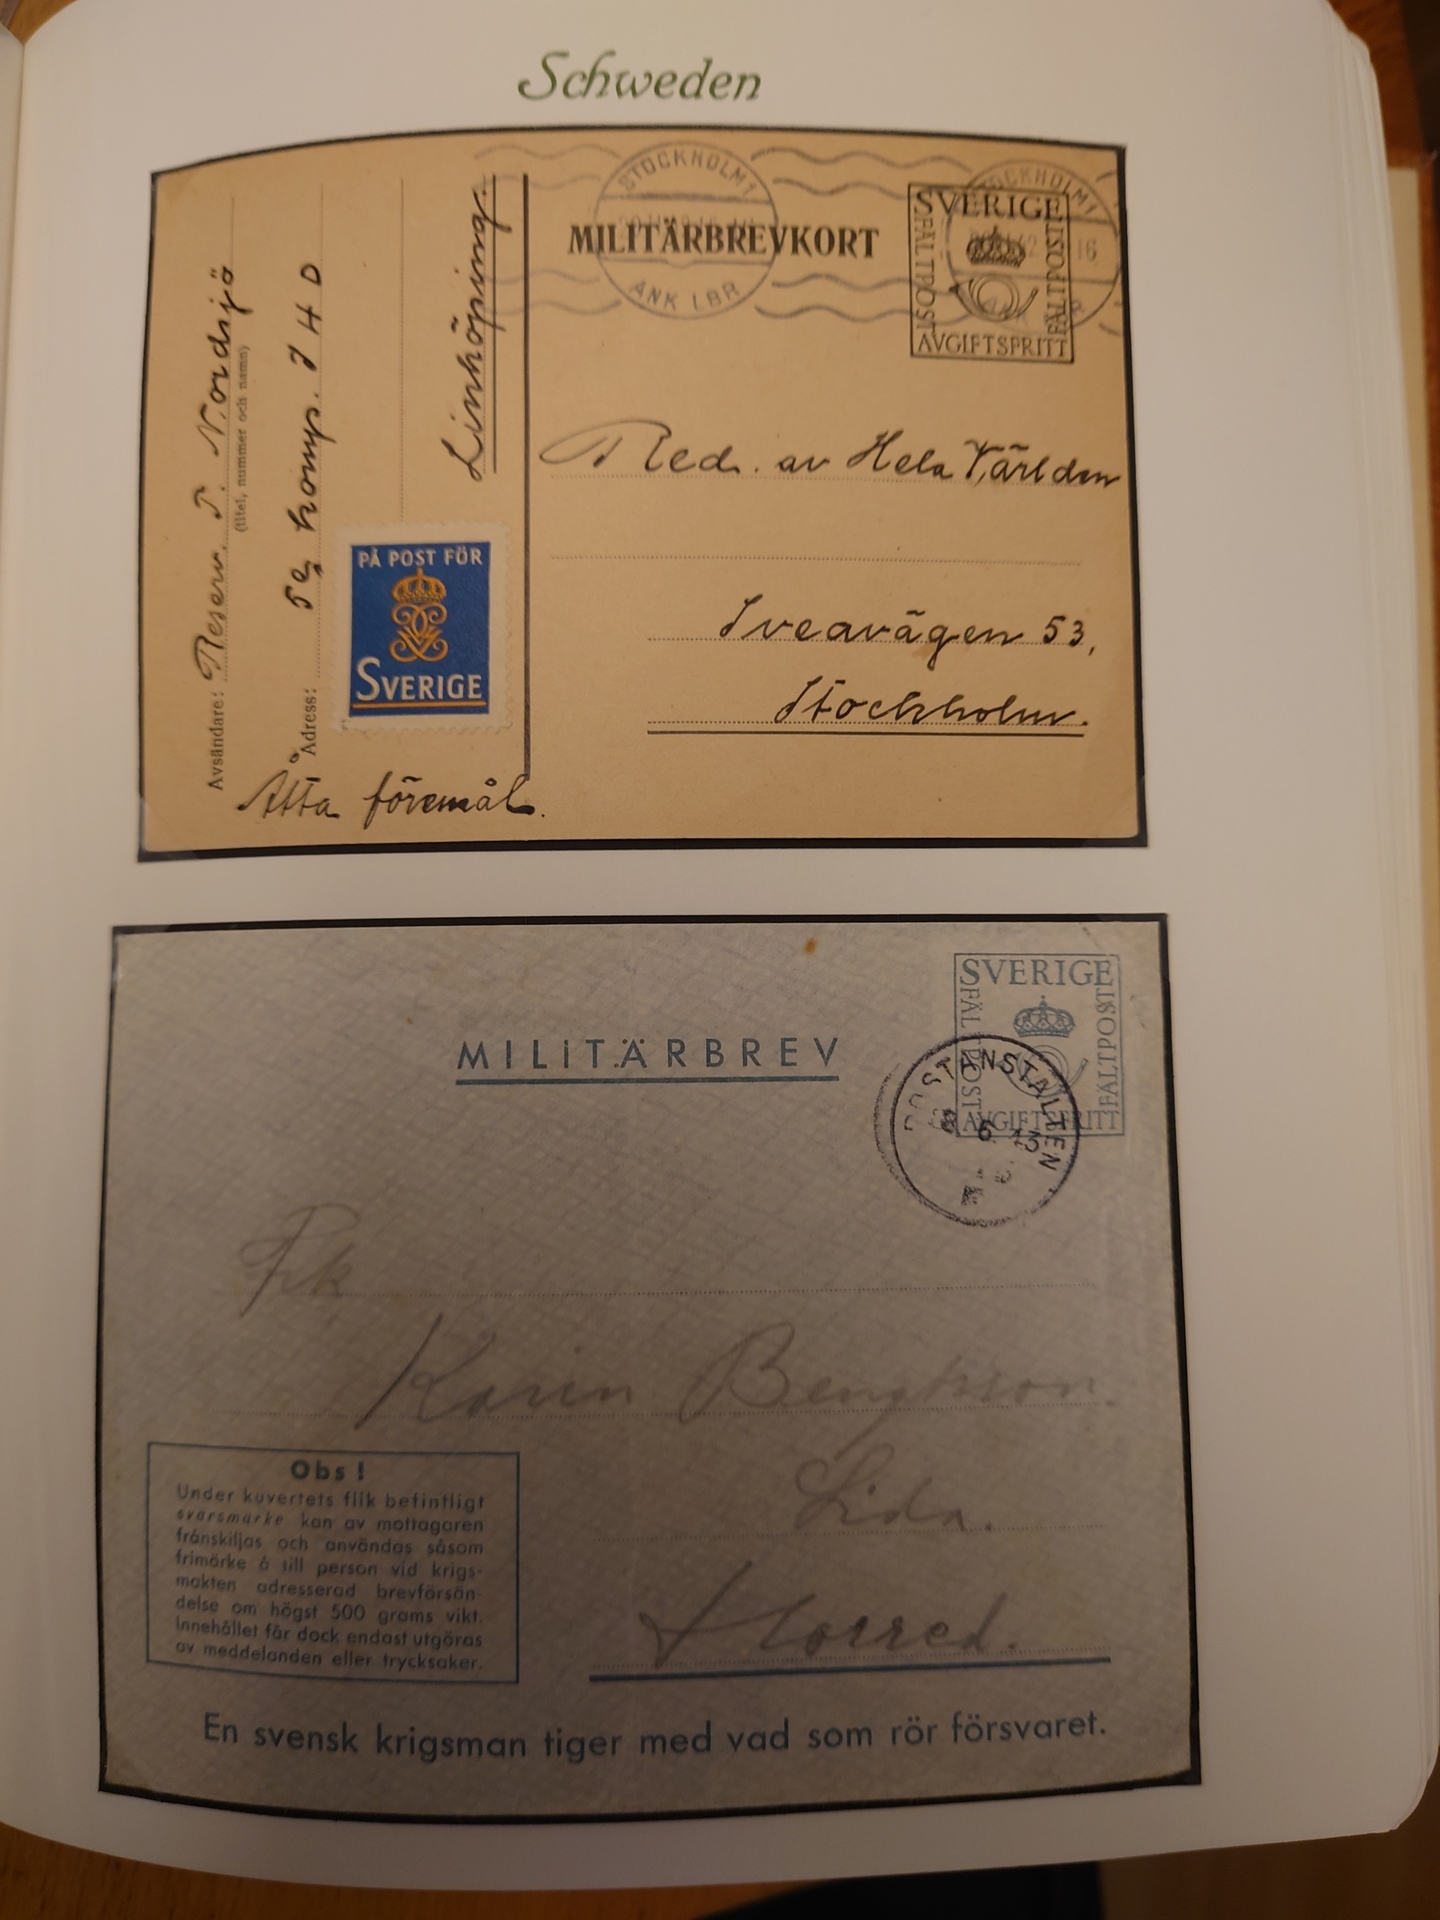 Schweden
STOCKHOLM 1
ANK LBR
MILITÄRBREVKORT
STOCKHOLM 1
16
SVERIGE
FÄLTPOST
FÄLTPOST
AVGIFTSFRITT
Avsändare: Reserv. T. Nordsjö
(titel, nummer och namn)
Adress: 5e komp. I 4 D
Linköping.
PÅ POST FÖR
SVERIGE
Red. av Hela Världen
Sveavägen 53,
Stockholm.
Åtta föremål.
MILITÄRBREV
SVERIGE
FÄLTPOST
FÄLTPOST
AVGIFTSFRITT
POSTANSTALTEN
8 6 43
Frk
Karin Bengtsson.
Lida.
Horred.
Obs!
Under kuvertets flik befintligt
svarsmärke kan av mottagaren
frånskiljas och användas såsom
frimärke å till person vid krigs-
makten adresserad brevförsän-
delse om högst 500 grams vikt.
Innehållet får dock endast utgöras
av meddelanden eller trycksaker.
En svensk krigsman tiger med vad som rör försvaret.